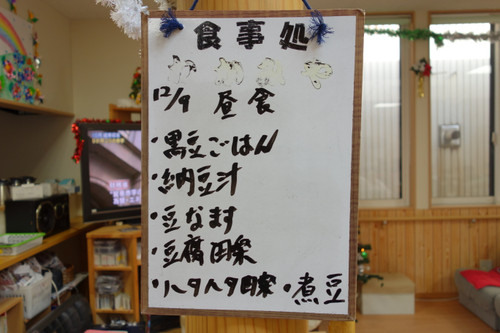 食事処
12/9 昼食
・黒豆ごはん
・納豆汁
・豆なます
・豆腐田楽
・ハタハタ田楽 ・煮豆